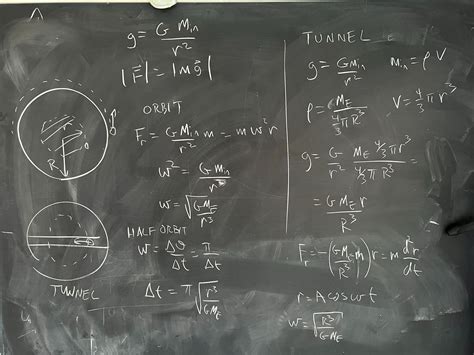 g = G Min / r²
|F⃗| = |mg⃗|
ORBIT
Fr = G Min / r² m = m w² r
w² = G Min / r³
w = √(G ME / r³)
HALF ORBIT
w = Δθ / Δt = π / Δt
Δt = π √(r³ / GME)
R
TUNNEL
TUNNEL
g = G Min / r² Min = ρ V
ρ = ME / (4/3 π R³) V = 4/3 π r³
g = G / r² ME 4/3 π r³ / (4/3 π R³)
= G ME r / R³
Fr = -(G ME / R³ m) r = m d²r / dt
r = A cos wt
w = √(R³ / GME)